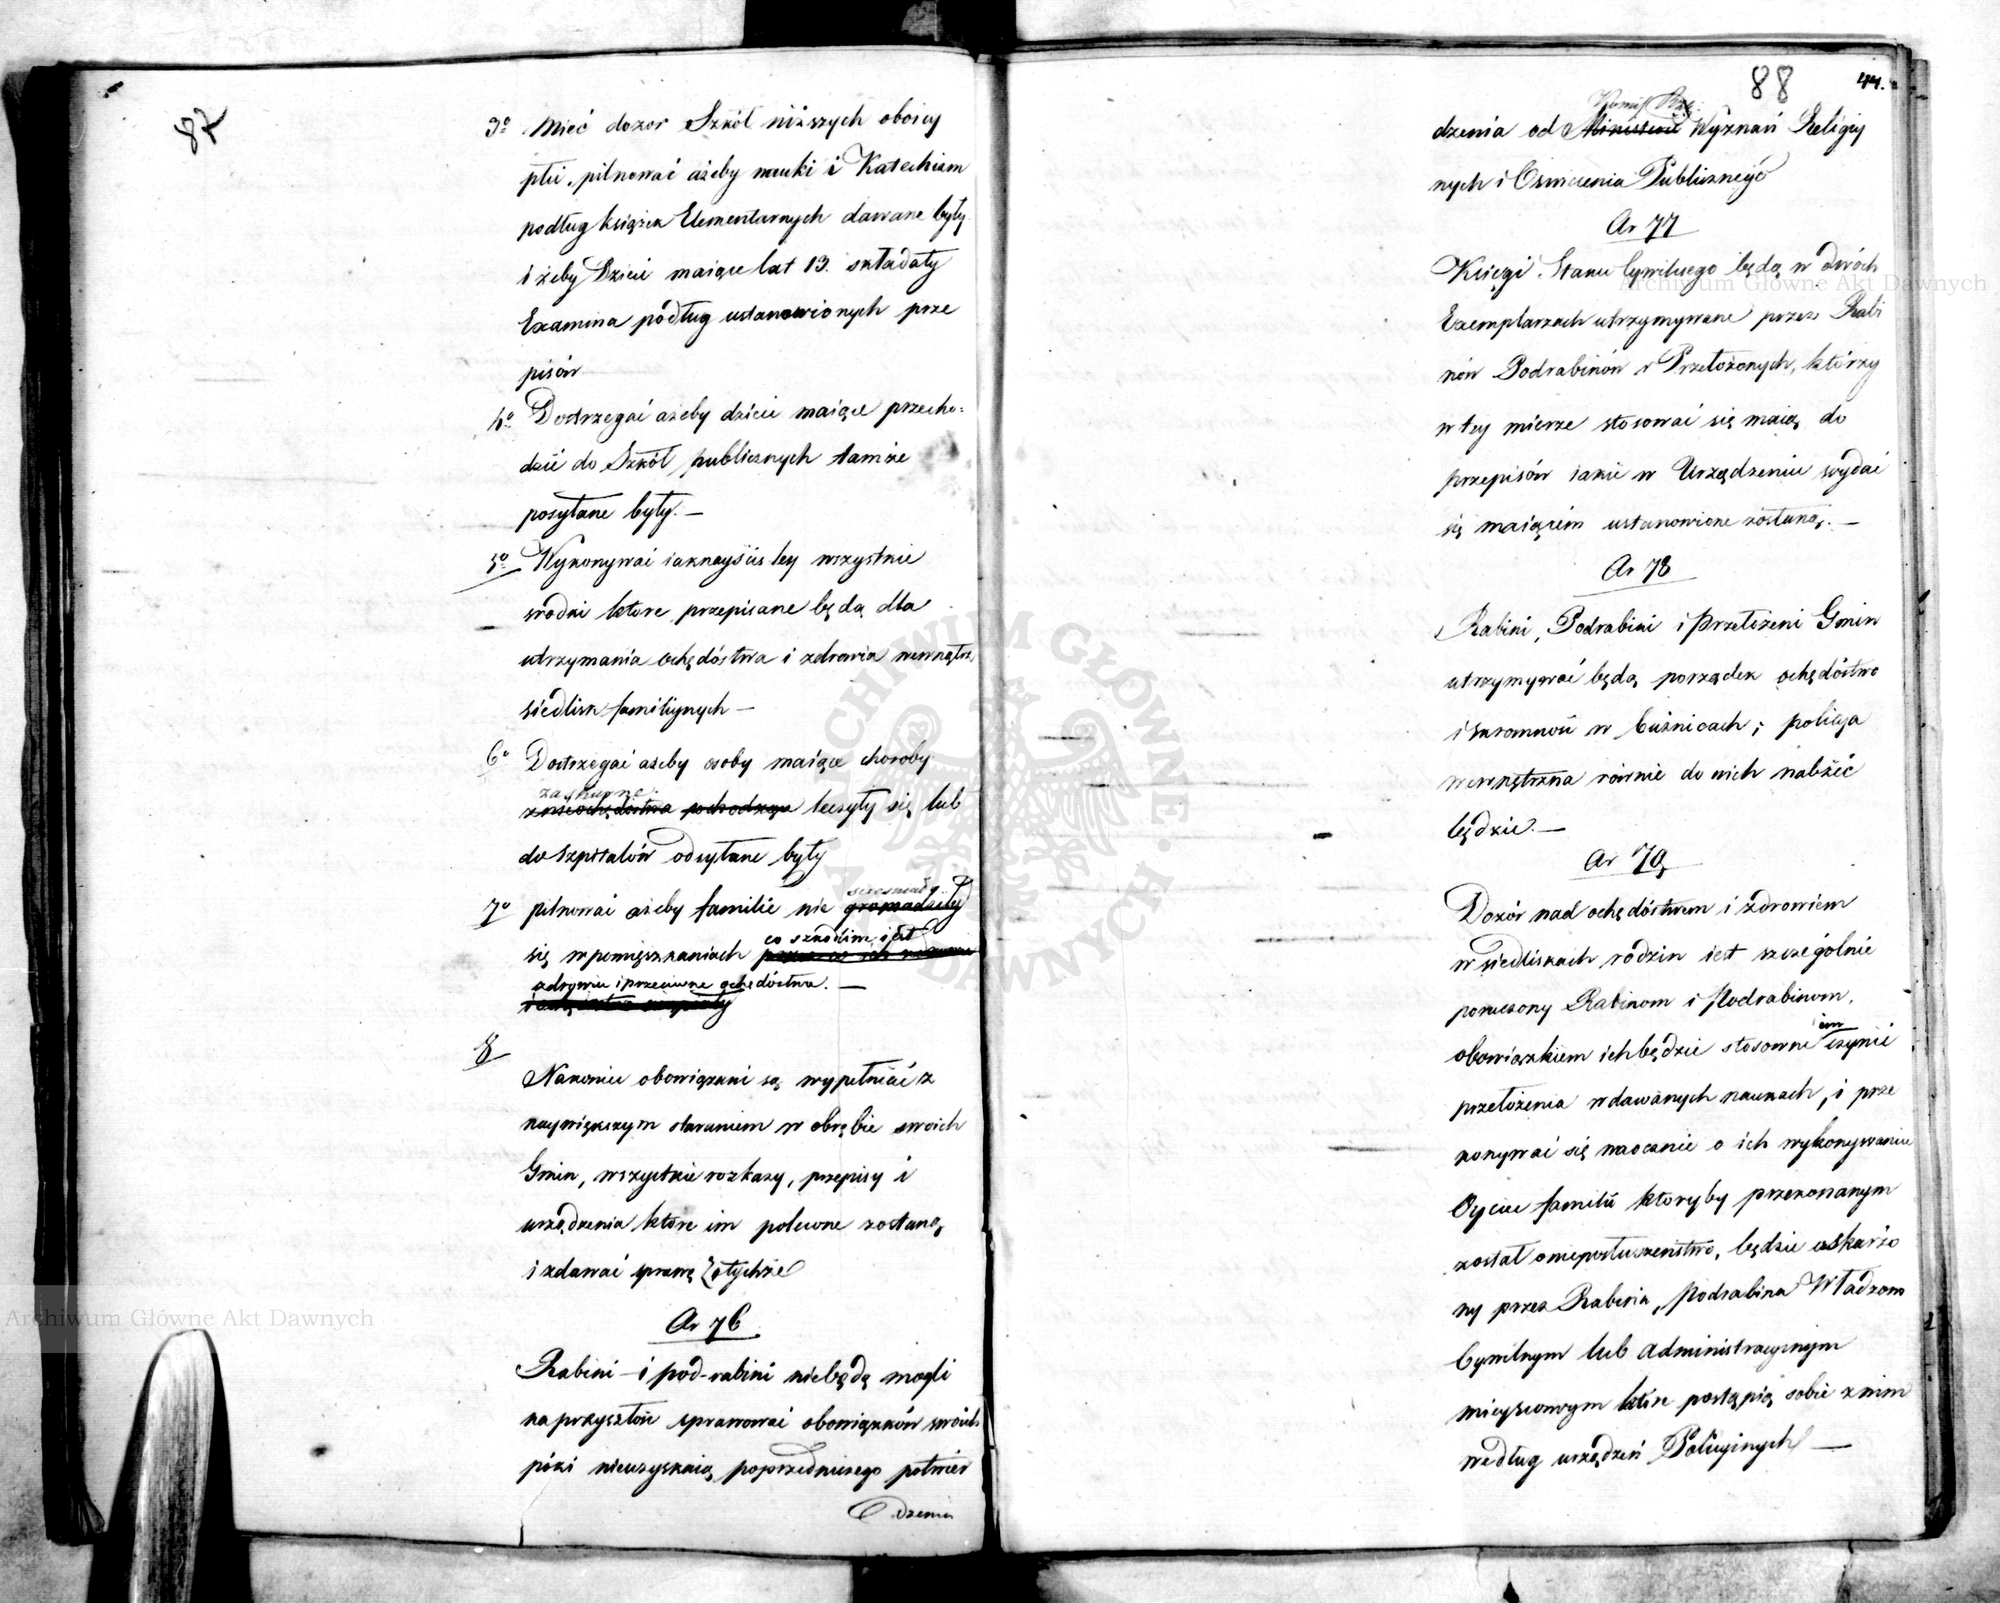 87
3º Mieć dozor Szkół niższych oboiey
płci, pilnować ażeby nauki i Katechizm
podług książek Elementarnych dawane były
i żeby Dzieci maiące lat 13. składały
Examina podług ustanowionych prze
pisów
4º Dostrzegać ażeby dzieci maiące przecho=
dzić do Szkół publicznych tamże
posyłane były. —
5º Wykonywać iaknayściśley wszystkie
srodki ktore przepisane będą dla
utrzymania ochędóstwa i zdrowia wewnątrz
siedlisk familiynych —
6º Dostrzegać ażeby osoby maiące choroby
zaskurne
z nieochędóstwa pochodzące leczyły się lub
do Szpitalów odsyłane były
7º pilnować ażeby familie nie gromadziły
się w pomięszkaniach
co szkodliwe iest
zdrowiu i przeciwne ochędóstwa. —
8
Nakoniec obowiązani są wypełniać z
naywiększym staraniem w obrębie swoich
Gmin, wszystkie rozkazy, przepisy i
urządzenia które im polecone zostaną
i zdawać sprawę z tychże
Ar 76
Rabini i pod-rabini niebędą mogli
na przyszłość sprawować obowiązków swoich
póki nieuzyskaią poprzedniczego potwier
dzenia
88
44.
Komiss Rzą:
dzenia od Ministra Wyznań Religiy
nych i Oswiecenia Publicznego
Ar 77
Księgi Stanu Cywilnego będą w dwóch
Exemplarzach utrzymywane przez Rabi
nów Podrabinów i Przełożonych, którzy
w tey mierze stosować się maią do
przepisów iakie w Urządzeniu wydać
się maiącém ustanowione zostaną. —
Ar 78
Rabini, Podrabini i Przełożeni Gmin
utrzymywać będą porządek ochędóstwo
i skromność w Bużnicach; policya
wewnętrzna równie do nich należeć
będzie. —
Ar 79
Dozór nad ochędóstwem i zdrowiem
w siedliskach rodzin iest szczególnie
poruczony Rabinom i Podrabinom,
obowiązkiem ich będzie stosowne im czynić
przełożenia w dawanych naukach, i prze
konywać się naocznie o ich wykonywaniu
Oyciec familii ktoryby przekonanym
został o nieposłuszeństwo, będzie oskarżo
ny przez Rabina, Podrabina Władzom
Cywilnym lub administracyinym
mieyscowym które postąpią sobie z nim
według urządzeń Policyinych —
Archiwum Główne Akt Dawnych
Archiwum Główne Akt Dawnych
ARCHIWUM GŁÓWNE AKT DAWNYCH